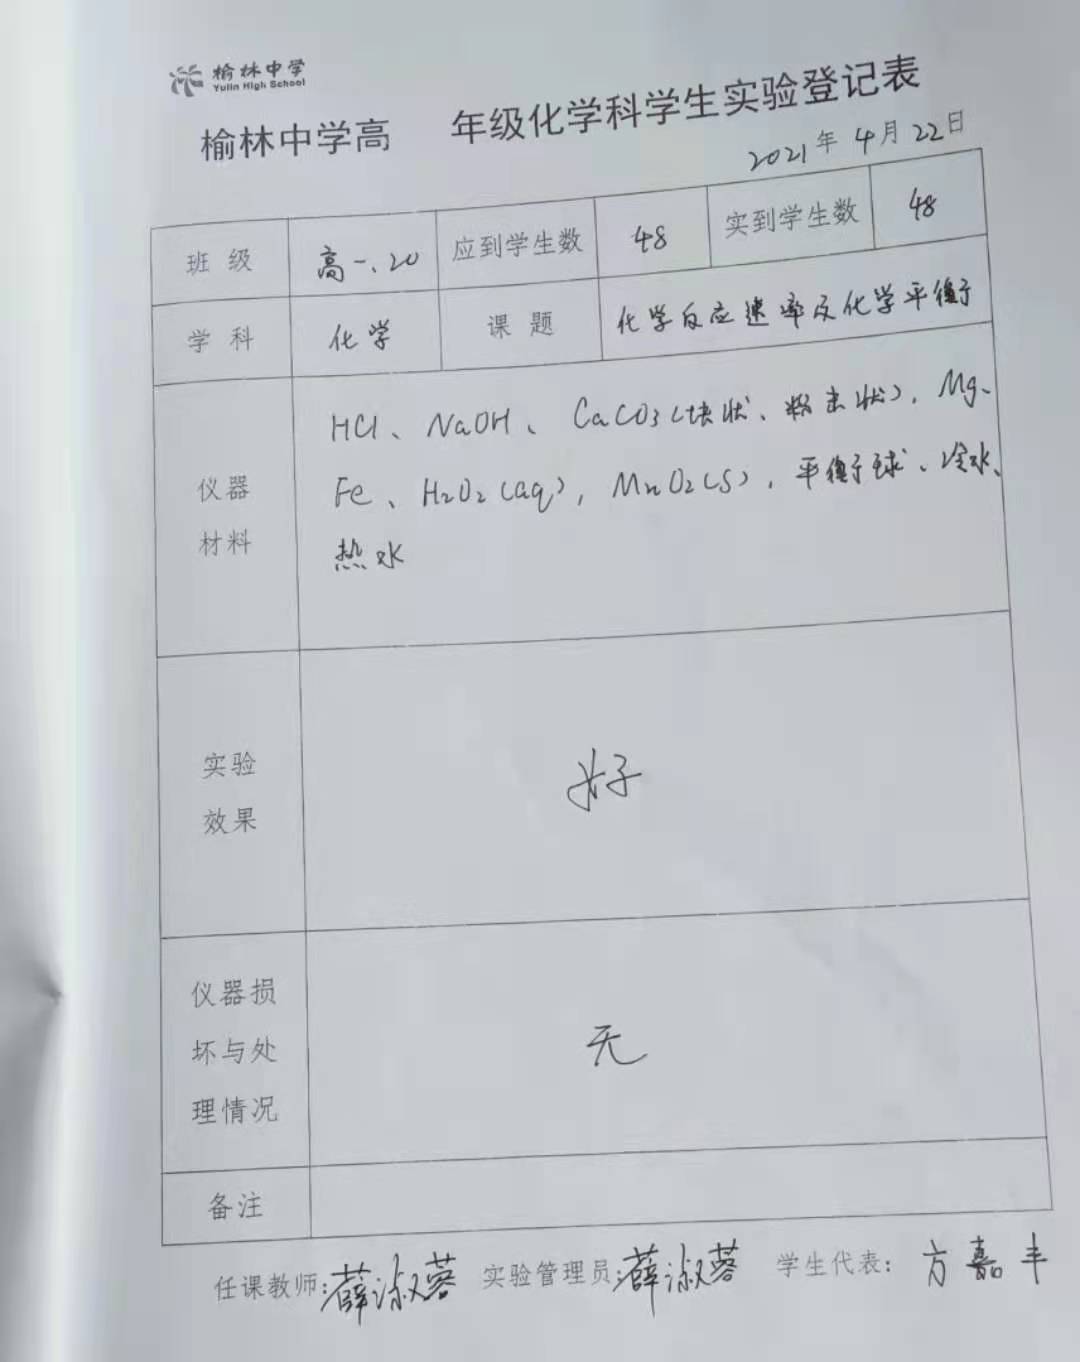 榆林中学
Yulin High School
榆林中学高 年级化学科学生实验登记表
2021年4月22日
班级 高一.20 应到学生数 48 实到学生数 48
学科 化学 课题 化学反应速率及化学平衡
HCl、NaOH、CaCO3(块状、粉末状), Mg、
仪器 Fe、H2O2(aq), MnO2(s), 平衡球、冷水、
材料 热水
实验
效果 好
仪器损
坏与处 无
理情况
备注
任课教师:薛淑蓉 实验管理员:薛淑蓉 学生代表: 方嘉丰